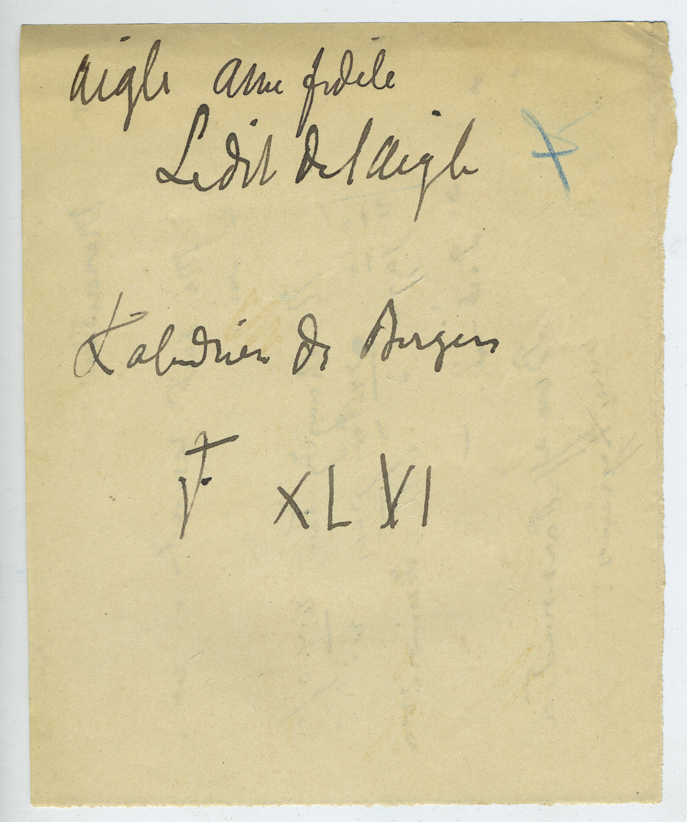 aigle ame fidèle
Le dit de l'aigle
Kalendrier des Bergers
f. XLVI